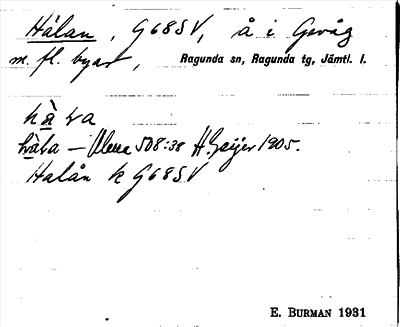 Hålan, G68SV, å i Gevåg
m. fl. byar, Ragunda sn, Ragunda tg, Jämtl. l.
hà va
håla — Ulma 508:38 H. Geijer 1905.
Halån k G68SV
E. BURMAN 1931